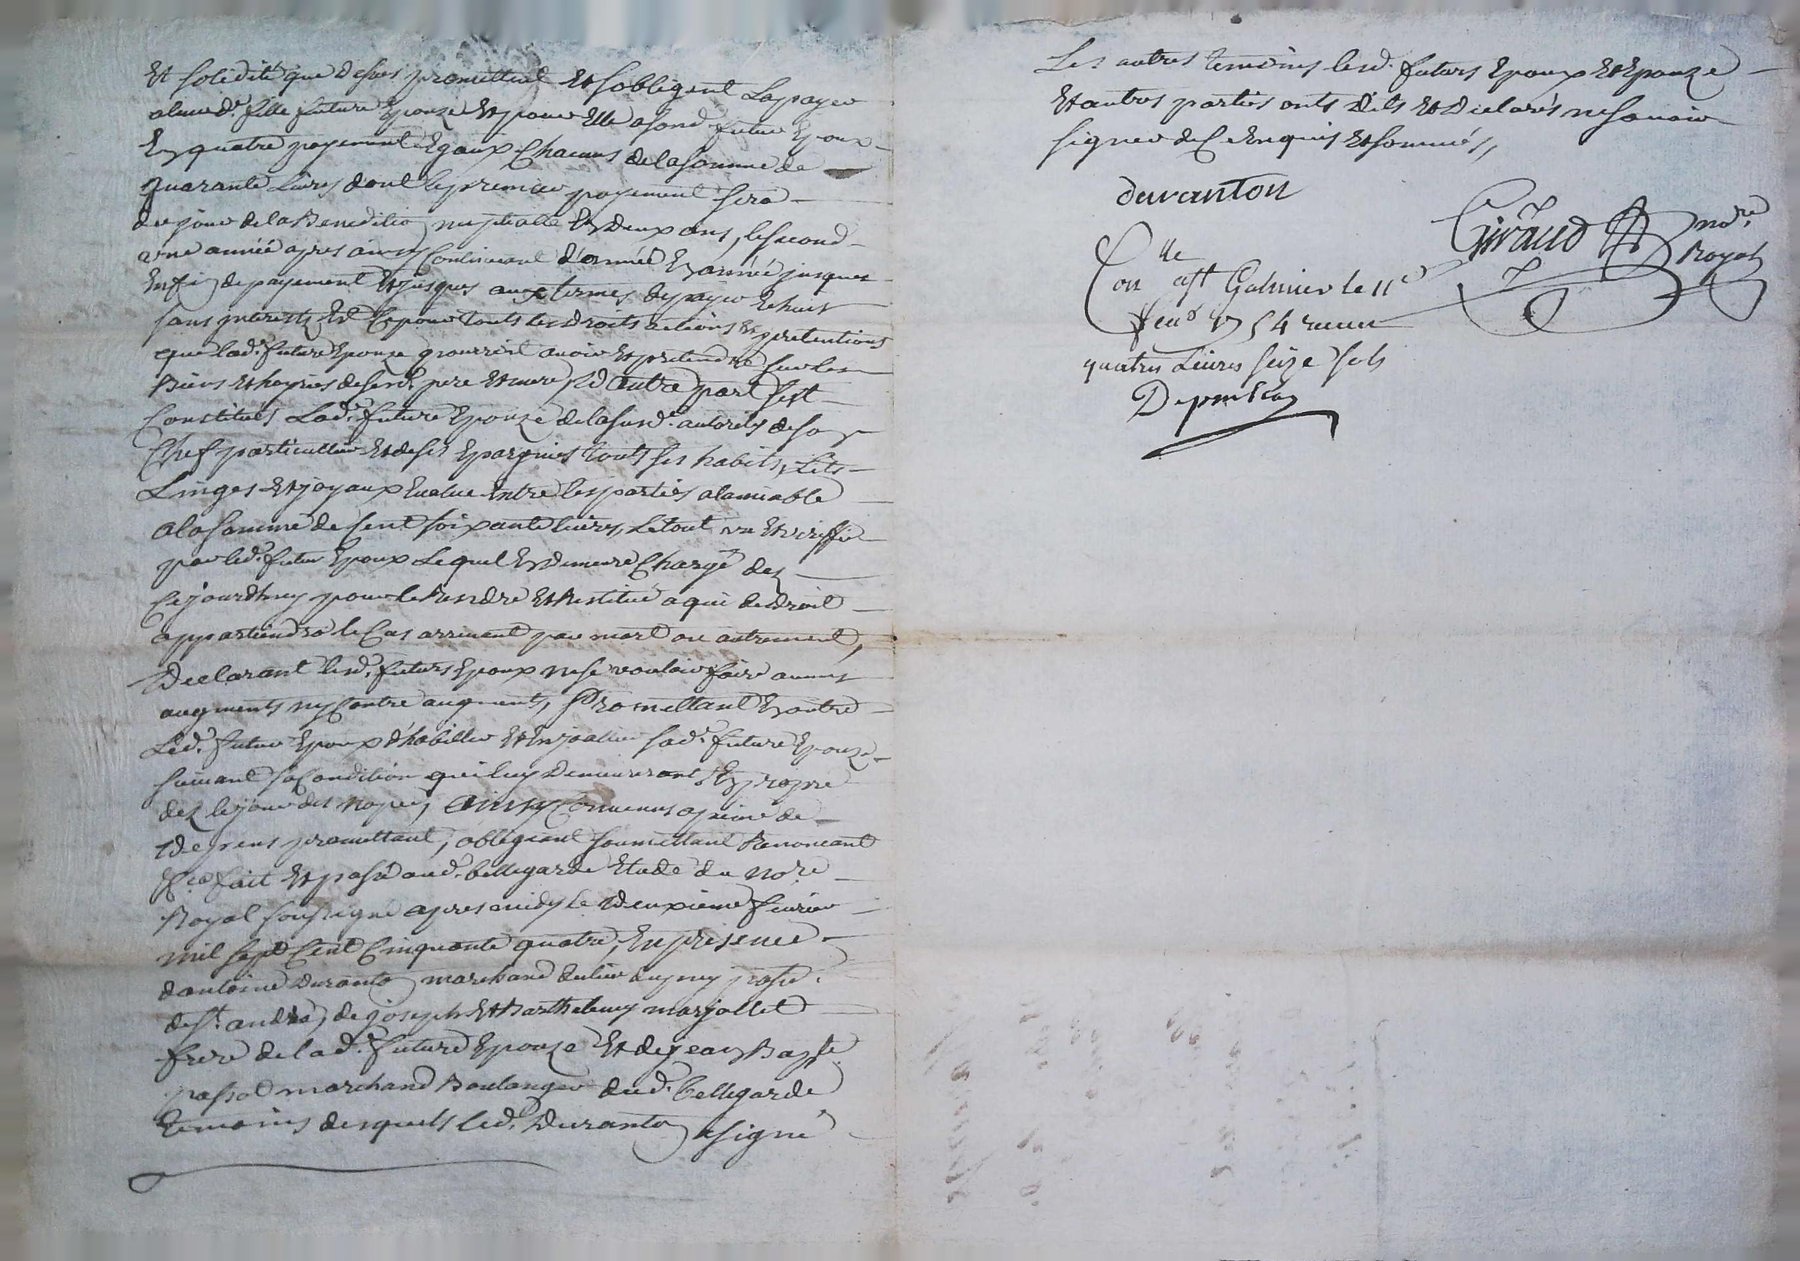 Et solidité que dessus promettent Et sobligent La payer
aleurd.e fille future Epouze Et pour Elle a sond. futur Epoux
En quatre payements Egaux Chacuns de la somme de
quarante Livres dont le premier payement sera
du jour de la Benediction nuptialle En deux ans, le second
une année apres ainsy Continuant d'année En année jusques
Enfin de payement Et jusques aux termes de payer Echuts
sans interests Et Ce pour touts les droits actions Et pretentions
que lad.e future Epouze pourroit avoir Et pretendre sur les
Biens Et hoyries de sesd. pere Et mere, Et d'autre part s'est
Constituée Lad.e future Epouze de la susd.e autorité de son
Chef particullier Et de ses Epargnes touts ses habits, Lits
Linges Et joyaux Evalué Entre les parties alamiable
a la somme de sent soixante livres, Le tout vu Et veriffié
par led. futur Epoux Lequel En demeure Chargé dez
Cejourdhuy pour le Rendre Et Restitué a qui de droit
appartiendra le Cas arrivant par mort ou autrement,
Declarant lesd. futurs Epoux ne se vouloir faire aucuns
augments ny Contre augments, Promettant En outre
Led. futur Epoux d'habiller Et Enjoaller sad.e future Epouze
suivant sa Condition qui luy demeureront En propre
dez le jour des nopces, Ainsy Convenus a peine de
Depens promettant, obligeant soumettant Renonceant
&ca fait Et passé aud. bellegarde Etude du no.re
Royal soussigné apres midy le deuxieme fevrier
mil sept Cent Cinquante quatre, En presence
d'antoine Duranton marchand du lieu
de St. andré, de joseph Et Barthelemy marjollet
frere de la d.e future Epouze Et de jean Bap.te
passot marchand Boulanger dud. bellegarde
temoins desquels led. Duranton a signé
Les autres temoins lesd. futurs Epoux Et Epouze
Et autres parties onts dits Et Declarés ne savoir
signer de Ce Enquis Et sommés,
duranton
Giraud no.re
Royal
Con.lle a St Galmier le 11e
fevr 1754 recu
quatres Livres seize sols